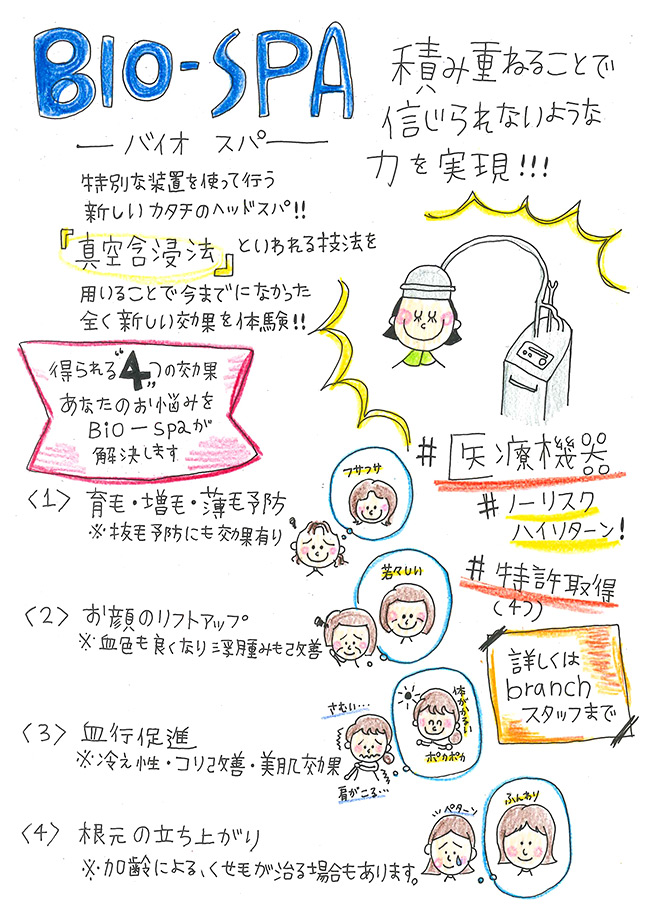 BIO-SPA
バイオ スパ
積み重ねることで
信じられないような
力を実現!!!
特別な装置を使って行う
新しいカタチのヘッドスパ!!
『真空含浸法』といわれる技法を
用いることで今までになかった
全く新しい効果を体験!!
得られる"4"つの効果
あなたのお悩みを
BiO-Spaが
解決します
#医療機器
#ノーリスク
ハイリターン!
#特許取得
(4つ)
詳しくは
branch
スタッフまで
〈1〉育毛・増毛・薄毛予防
※抜毛予防にも効果有り
フサフサ
〈2〉お顔のリフトアップ
※血色も良くなり浮腫みも改善
若々しい
〈3〉血行促進
※冷え性・コリ改善・美肌効果
さむい…
肩がこる…
体がかるい
ポカポカ
〈4〉根元の立ち上がり
※加齢による、くせ毛が治る場合もあります。
ペターン
ふんわり